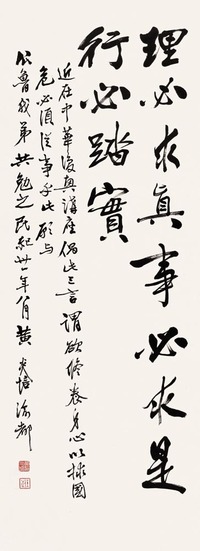 理必求真事必求是
行必踏實
近在中華復興講座倡此三言謂欲修養身心以拯國
危必須從事乎此願与
公魯我弟共勉之民紀卅一年八月黃炎培渝都